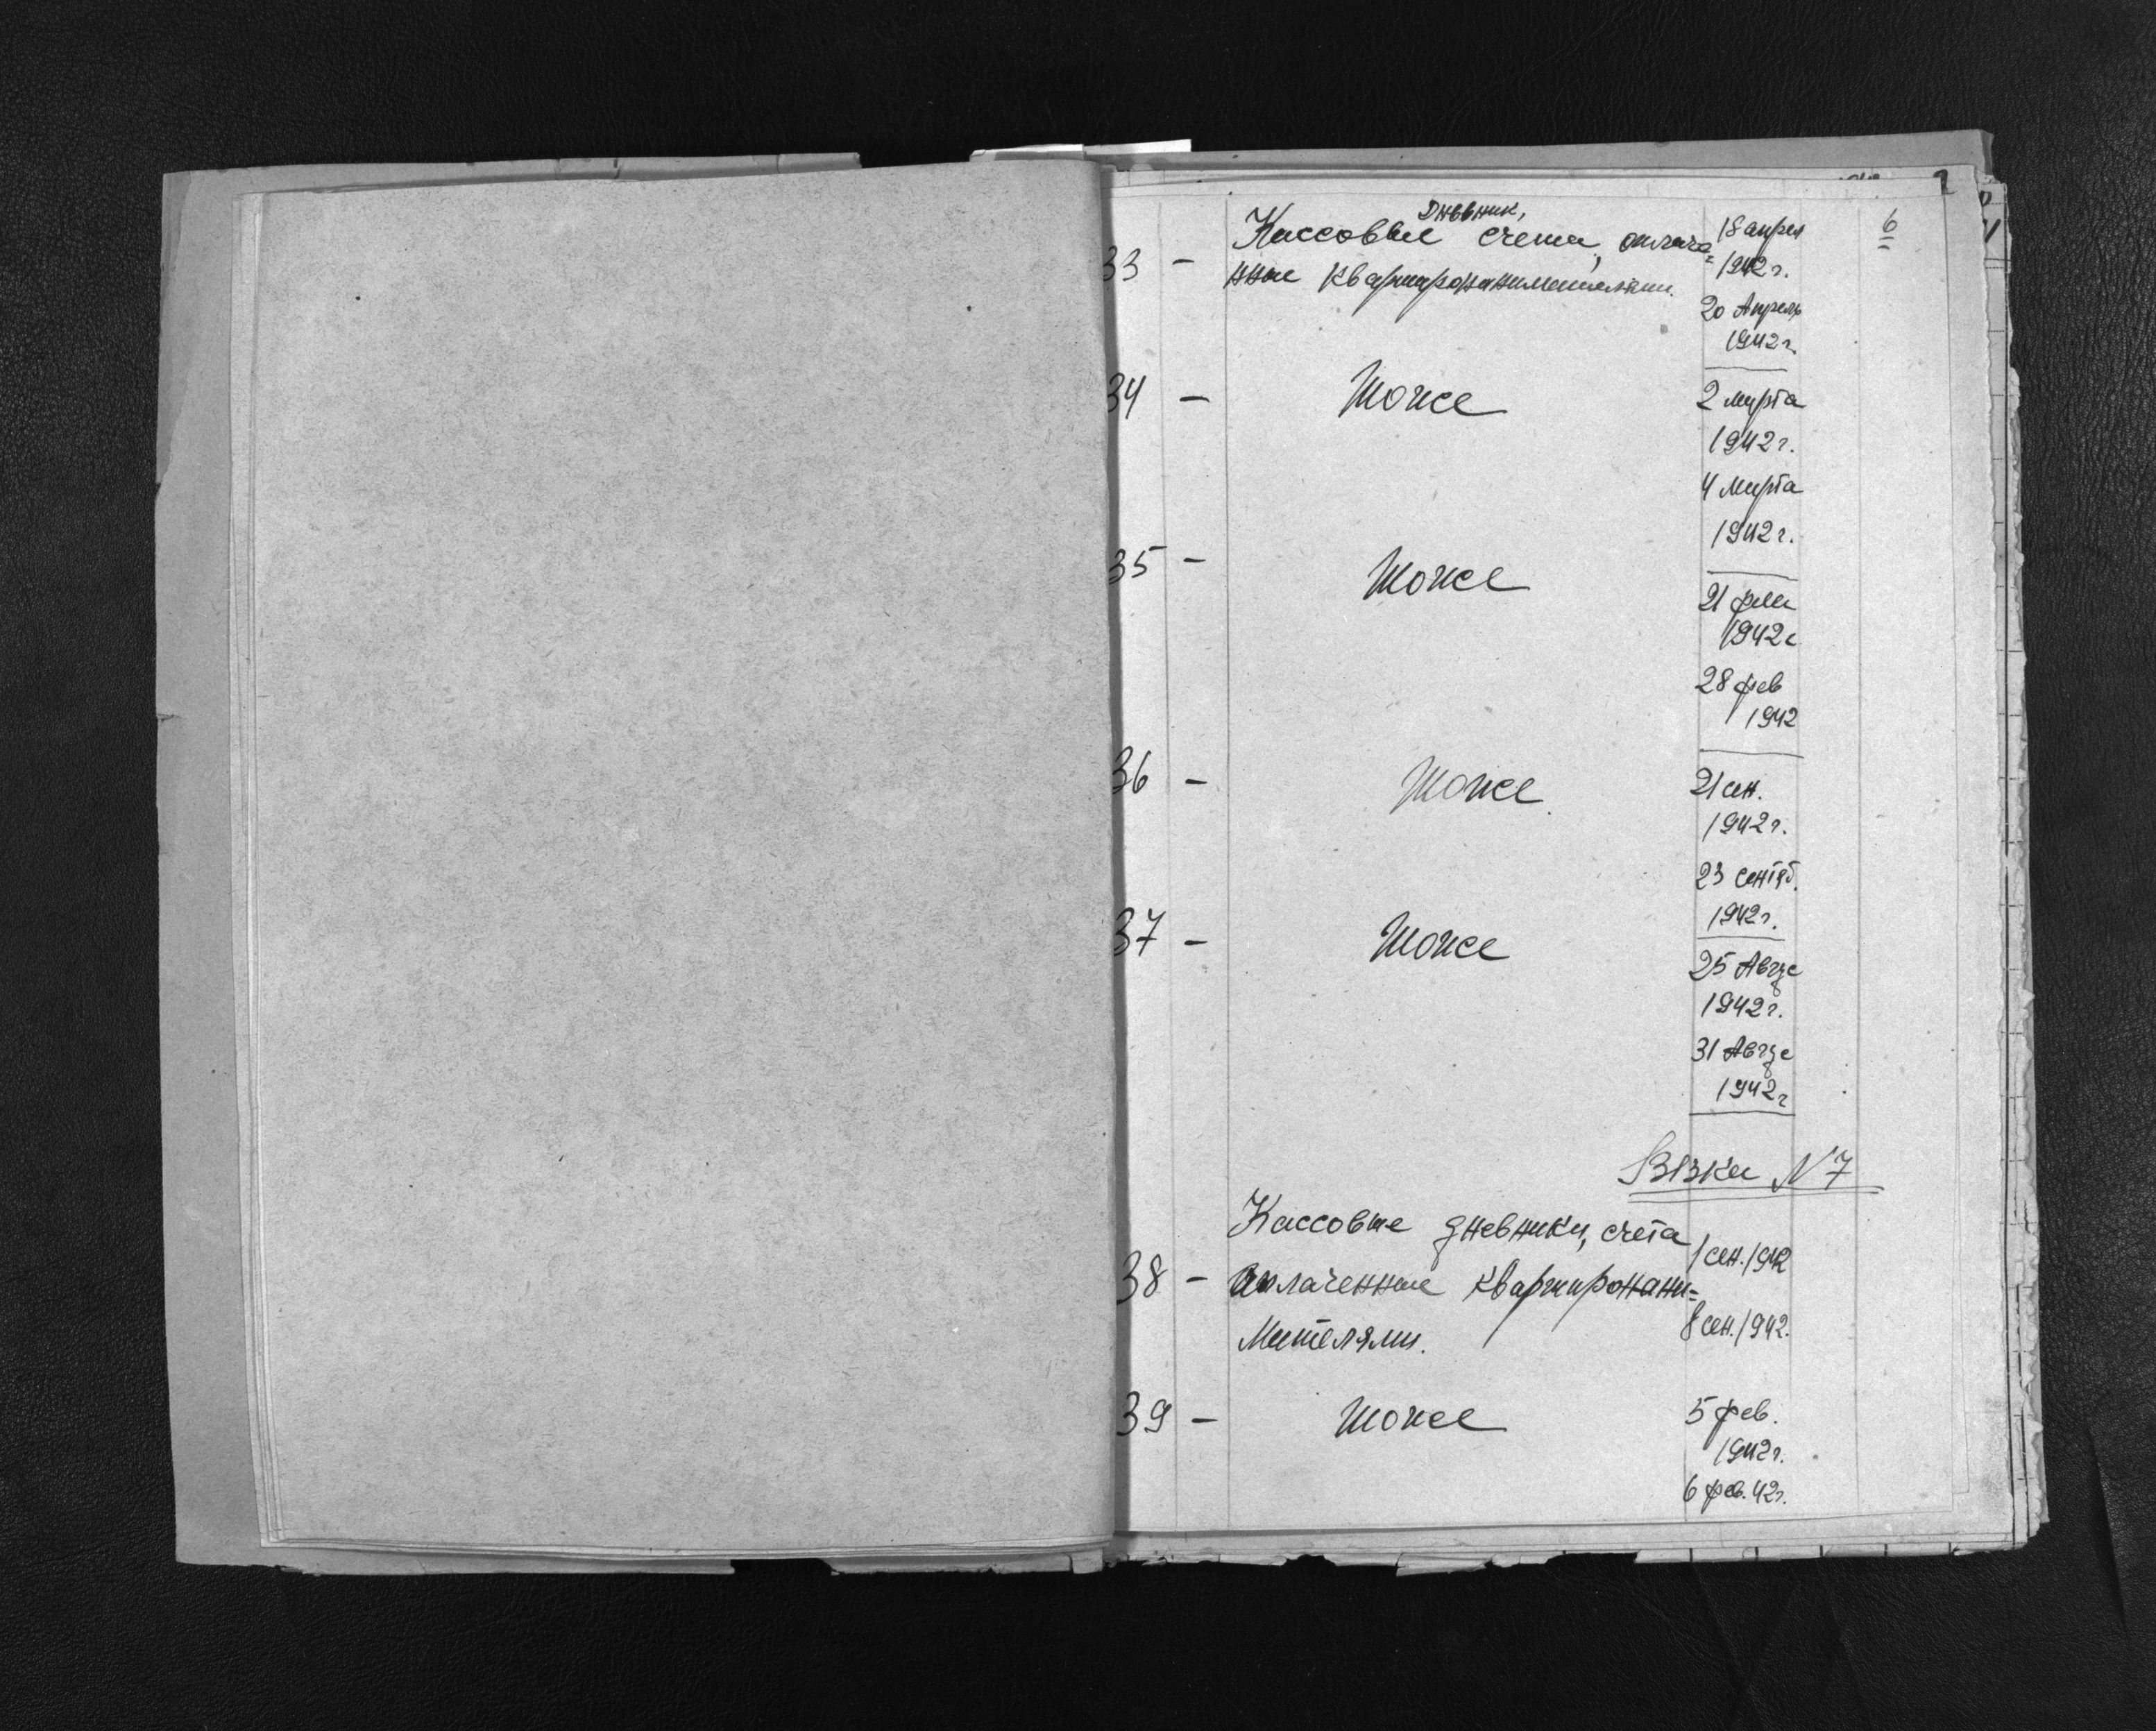 6
Дневник,
Кассовые счета, оплаче=
33 — нные квартиронанимателями.
18 апреля
1942 г.
20 Апрель
1942 г.
34 — Тоже
2 марта
1942 г.
4 марта
1942 г.
35 — Тоже
21
1942 г
28 фев
1942
36 — Тоже.
21 сен.
1942 г.
23 сентяб.
1942 г.
37 — Тоже
25 Авгус
1942 г.
31 Авгус
1942 г
Вязка N 7
Кассовые дневники, счета
38 — оплаченные квартиронани=
мателями.
1 сен. 1942
8 сен. 1942.
39 — Тоже
5 фев.
1942 г.
6 фев. 42 г.